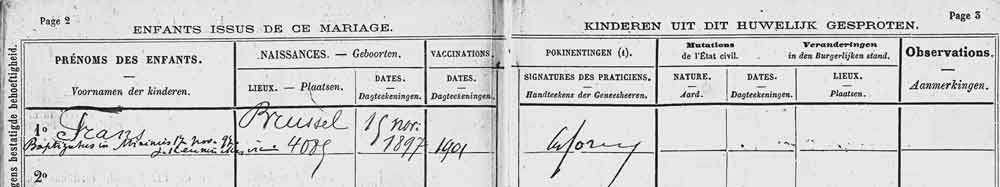 Page 2
ENFANTS ISSUS DE CE MARIAGE.
KINDEREN UIT DIT HUWELIJK GESPROTEN.
Page 3
gens bestatigde behoeftigheid.
PRÉNOMS DES ENFANTS.
Voornamen der kinderen.
NAISSANCES. — Geboorten.
LIEUX. — Plaatsen.
DATES.
Dagteekeningen.
VACCINATIONS
DATES.
Dagteekeningen.
POKINENTINGEN (1).
SIGNATURES DES PRATICIENS.
Handteekens der Geneesheeren.
Mutations
de l'État civil.
Veranderingen
in den Burgerlijken stand.
NATURE.
Aard.
DATES.
Dagteekeningen.
LIEUX.
Plaatsen.
Observations.
Aanmerkingen.
1º Frans
Brussel
15 nov.
1897
Baptizatus in Minimis 17 nov. 97
4089
1901
2º